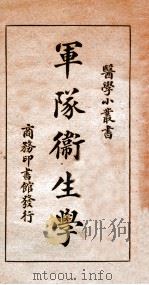 醫學小叢書
軍隊衞生學
商務印書館發行
mtoou.info